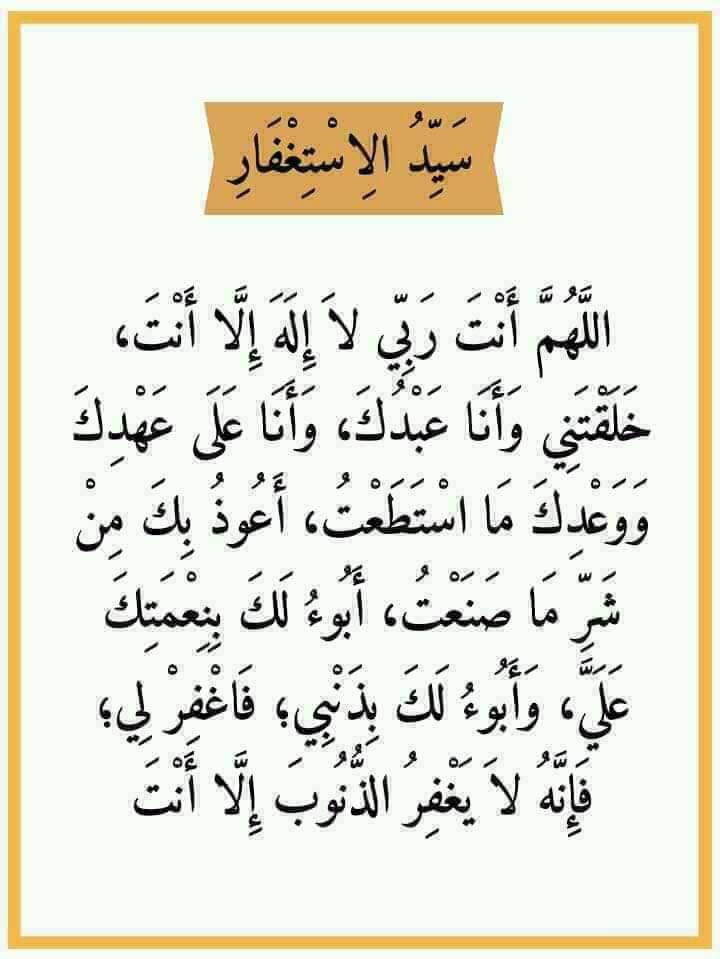 سَيِّدُ الِاسْتِغْفَارِ
اللَّهُمَّ أَنْتَ رَبِّي لاَ إِلَهَ إِلَّا أَنْتَ،
خَلَقْتَنِي وَأَنَا عَبْدُكَ، وَأَنَا عَلَى عَهْدِكَ
وَوَعْدِكَ مَا اسْتَطَعْتُ، أَعُوذُ بِكَ مِنْ
شَرِّ مَا صَنَعْتُ، أَبُوءُ لَكَ بِنِعْمَتِكَ
عَلَيَّ، وَأَبُوءُ لَكَ بِذَنْبِي؛ فَاغْفِرْ لِي؛
فَإِنَّهُ لاَ يَغْفِرُ الذُّنُوبَ إِلَّا أَنْتَ